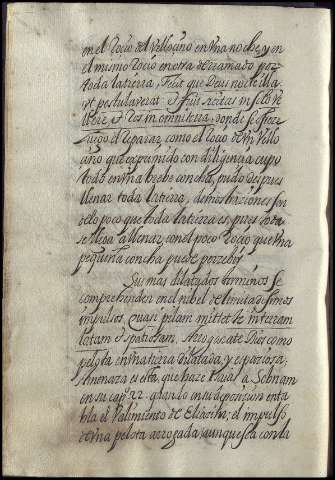 en el Rocio del Vellocino en una noche, y en
el mismo Rocio en otra derramado por
toda la tierra, Fecit que Deus nocte illa
ut postulaverat & fuit siccitas in solo ve
llere & Ros in omni terra, donde se
luego el reparar, como el Rocio de un Vello
cino que exprimido con diligencia cupo
todo en una breve concha, pudo despues
llenar toda la tierra,
ello poco que toda la tierra es, pues toda
se llega a llenar, con el poco Rocio que una
pequeña concha puede percebir
Sus mas dilatados terminos se
comprehenden en el nibel de limitadissimos
impulsos, Quasi pilam mittet te in terram
latam & spatiosam, Arrojarate Dios como
pelota en una tierra dilatada, y espaciosa;
Amenaza es esta, que hace Isaias a Sobnam
en su cap. 22. quando en su deposicion enta
bla el Valimiento de Eliacin; el impulso
de una pelota arrojada, aunque sea con la